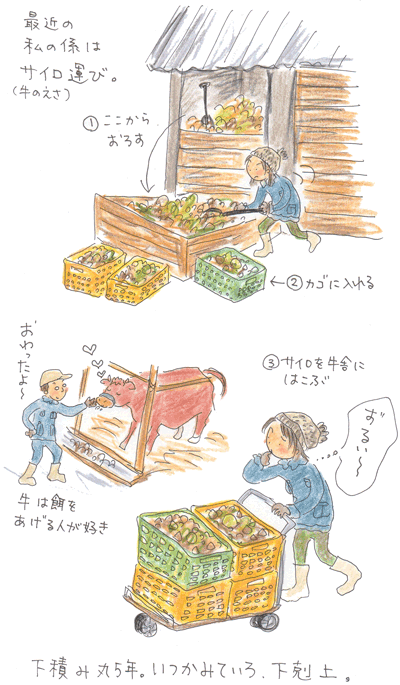 最近の
私の係は
サイロ運び。
(牛のえさ)
①ここから
おろす
←②カゴに入れる
おわったよ〜
③サイロを牛舎に
はこぶ
ずるい〜
牛は餌を
あげる人が好き
下積み丸5年。いつかみていろ、下剋上。